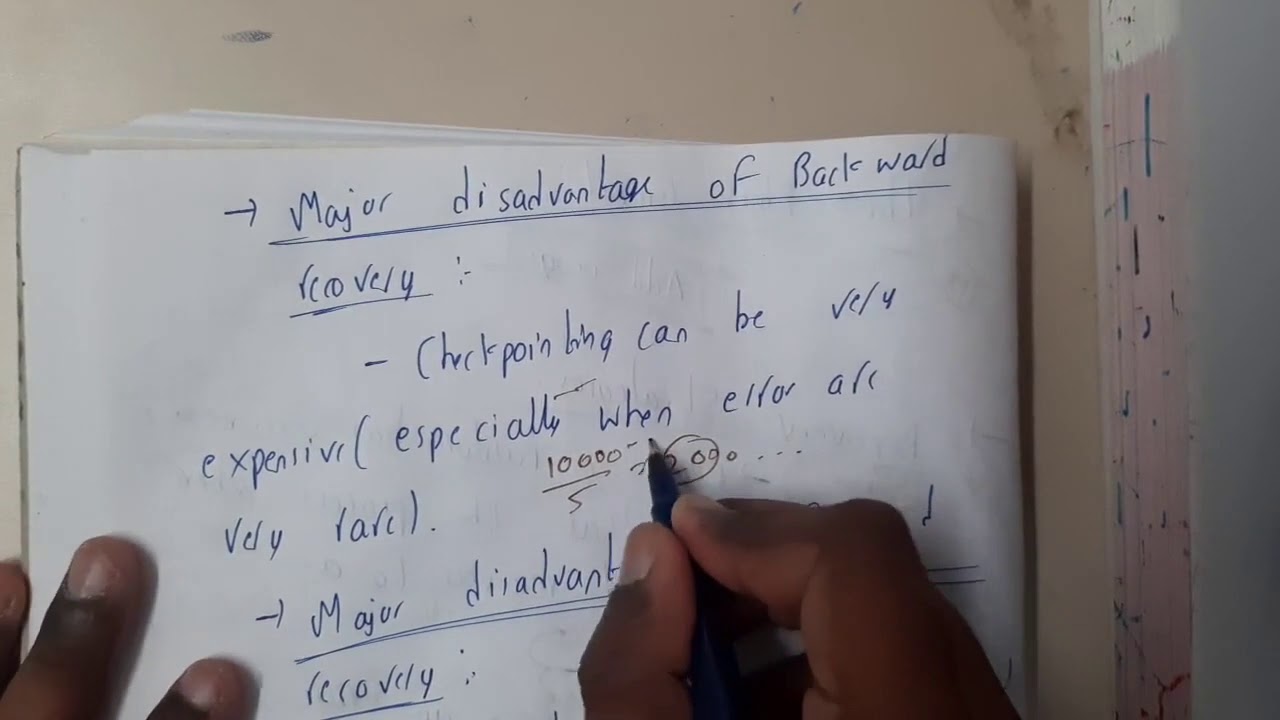 → Major disadvantage of Backward
recovery :-
- Checkpointing can be very
expensive ( especially when error are
10000
5
very rare).
→ Major disadvant
recovery :-